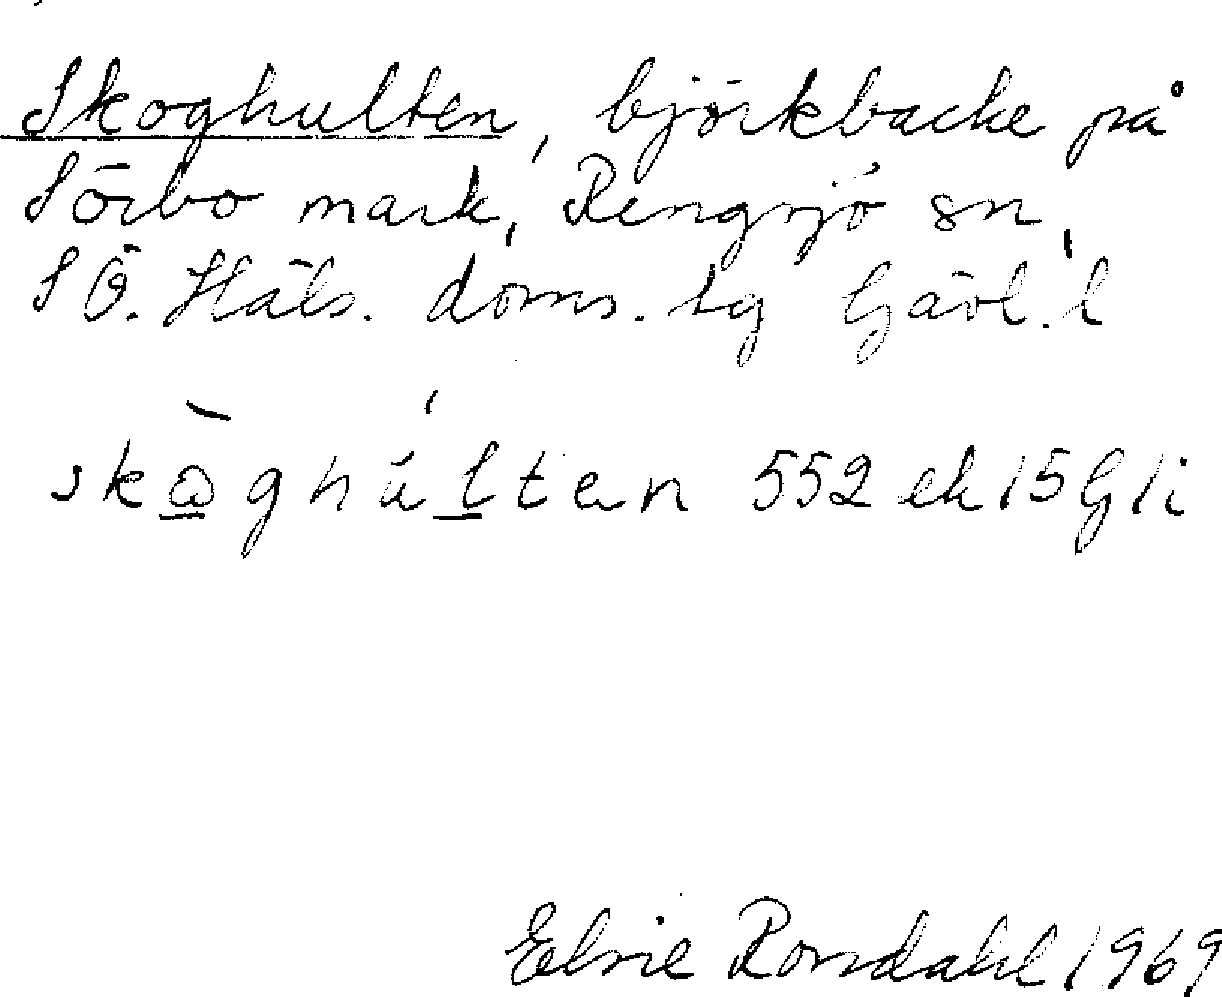 Skoghulten, björkbacke på
Sörbo mark, Rengsjö sn,
SÖ. Häls. doms. tg Gävl. l
skòghúlten 552 ek 15 G 1 i
Elsie Rorsdahl 1969